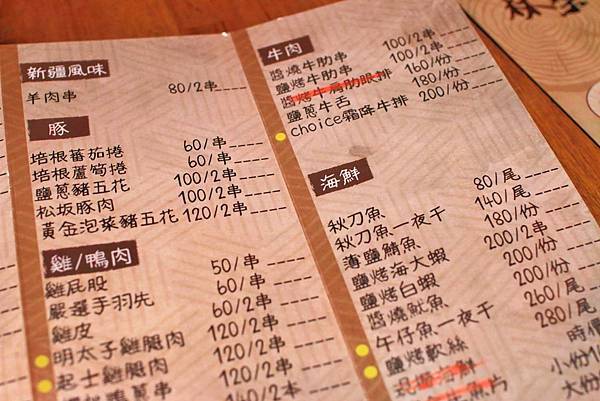 新疆風味
羊肉串 80/2串
豚
培根蕃茄捲 60/串
培根蘆筍捲 60/串
鹽蔥豬五花 100/2串
松坂豚肉 100/2串
黃金泡菜豬五花 120/2串
雞/鴨肉
雞屁股 50/串
嚴選手羽先 60/串
雞皮 100/2串
明太子雞腿肉 120/2串
起士雞腿肉 120/2串
120/2串
牛肉
醬燒牛肋串 100/2串
鹽烤牛肋串 100/2串
160/份
鹽蔥牛舌 180/份
choice霜降牛排 200/份
海鮮
秋刀魚 80/尾
秋刀魚一夜干 140/尾
薄鹽鯖魚 180/份
鹽烤海大蝦 200/2串
鹽烤白蝦 200/份
醬燒魷魚 200/份
午仔魚一夜干 260/尾
鹽烤軟絲 280/尾
時價
小份